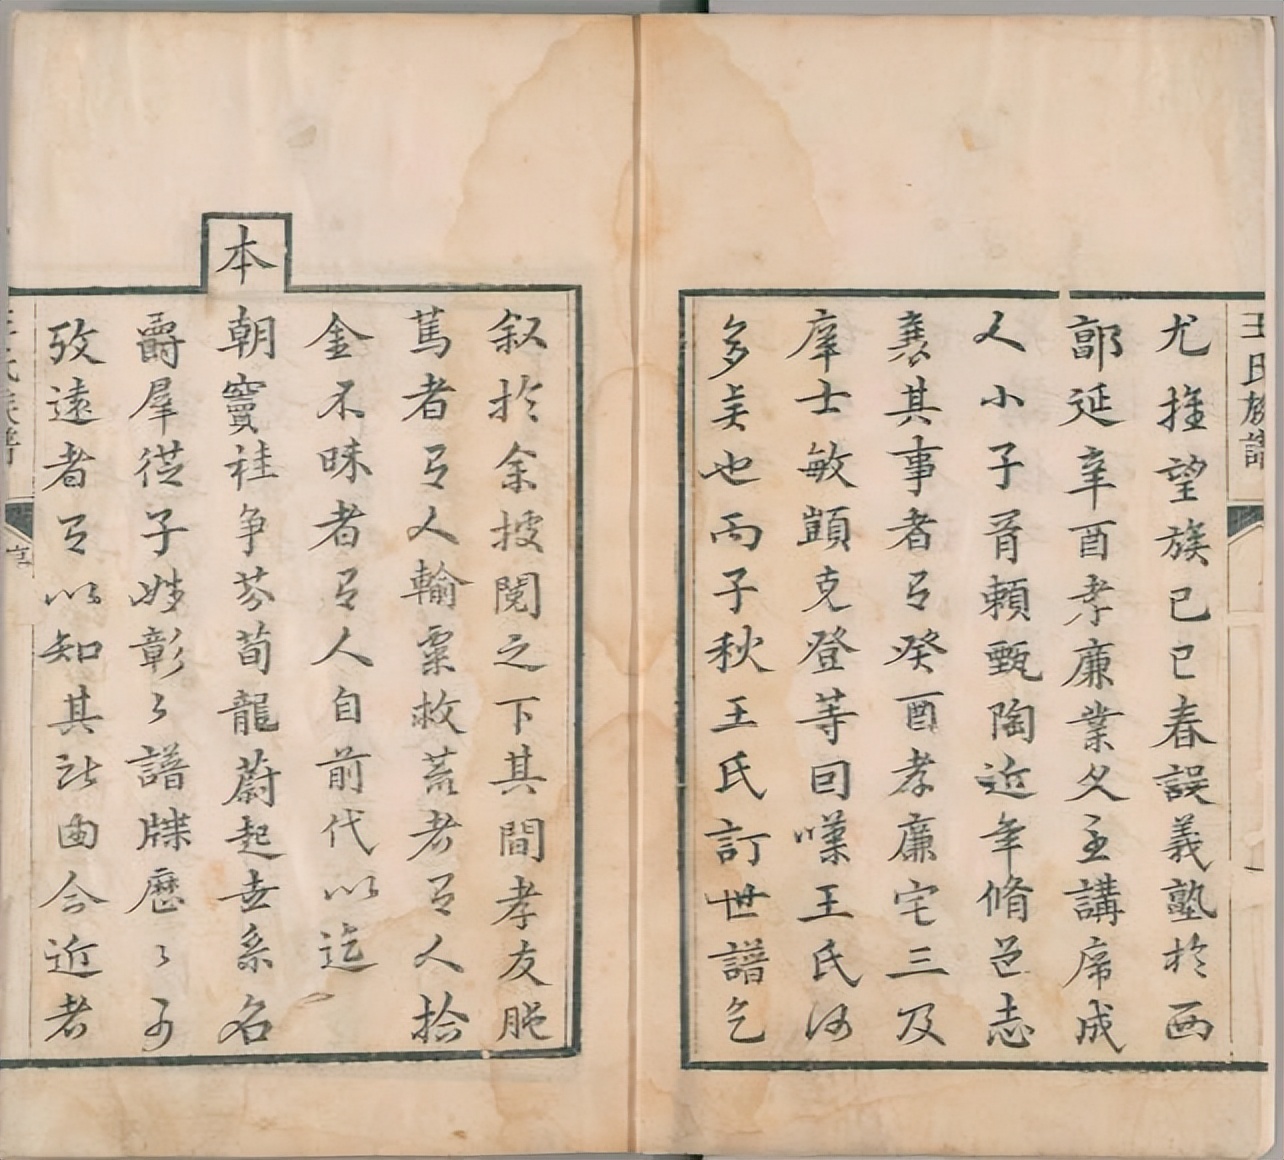 王氏族譜
尤推望族己巳春設義塾於西
鄙延辛酉孝廉業父主講席成
人小子胥頼甄陶近年脩邑志
襄其事者有癸酉孝廉宅三及
庠士敏顗克登等因嘆王氏何
多矣也丙子秋王氏訂世譜乞
叙於余披閱之下其間孝友肫
篤者有人輸粟救荒者有人拾
金不昧者有人自前代以迄
本
朝竇桂争芬荀龍蔚起世系名
爵羣從子姓彰々譜牒歷々可
攷遠者有以知其訛曲今近者
王氏族譜